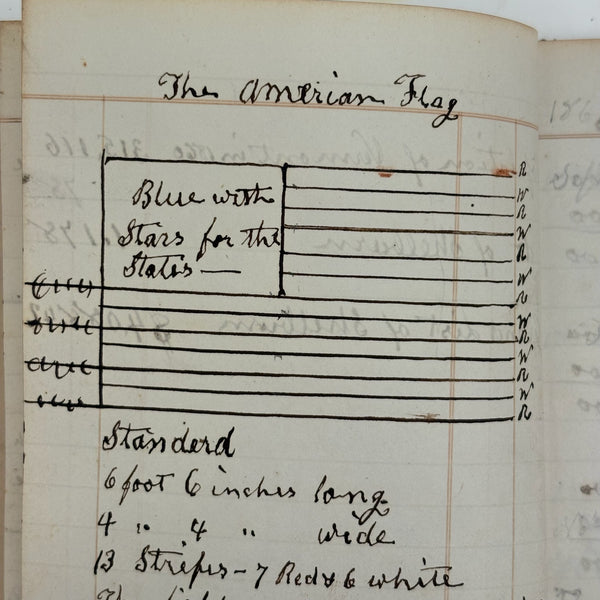 The Amerian Flag
Blue with
Stars for the
States —
R
W
R
W
R
W
R
W
R
W
R
W
R
Standerd
6 foot 6 inches long
4 " 4 " wide
13 Stripes - 7 Red & 6 white